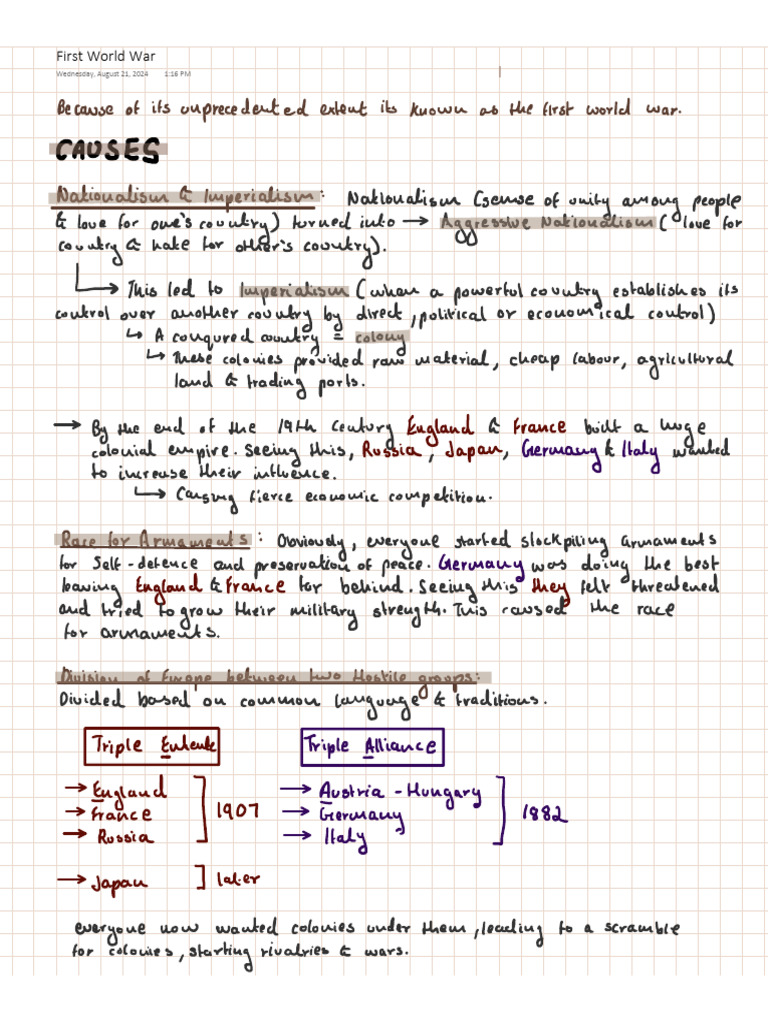 First World War
Wednesday, August 21, 2024 1:16 PM
Because of its unprecedented extent its known as the first world war.
CAUSES
Nationalism & Imperialism: Nationalism (sense of unity among people
& love for one's country) turned into → Aggressive Nationalism (love for
country & hate for other's country).
→ This led to Imperialism (when a powerful country establishes its
control over another country by direct, political or economical control)
↳ A conqured country = colony
↳ These colonies provided raw material, cheap labour, agricultural
land & trading ports.
→ By the end of the 19th century England & France built a huge
colonial empire. Seeing this, Russia, Japan, Germany & Italy wanted
to increase their influence.
↳ Causing fierce economic competition.
Race for Armaments: Obviously, everyone started stockpiling armaments
for self-defence and preservation of peace. Germany was doing the best
leaving England & France far behind. Seeing this they felt threatened
and tried to grow their military strength. This caused the race
for armaments.
Division of Europe between two Hostile groups:
Divided based on common language & traditions.
Triple Entente Triple Alliance
→ England → Austria-Hungary
→ France 1907 → Germany 1882
→ Russia → Italy
→ Japan ] later
everyone now wanted colonies under them, leading to a scramble
for colonies, starting rivalries & wars.